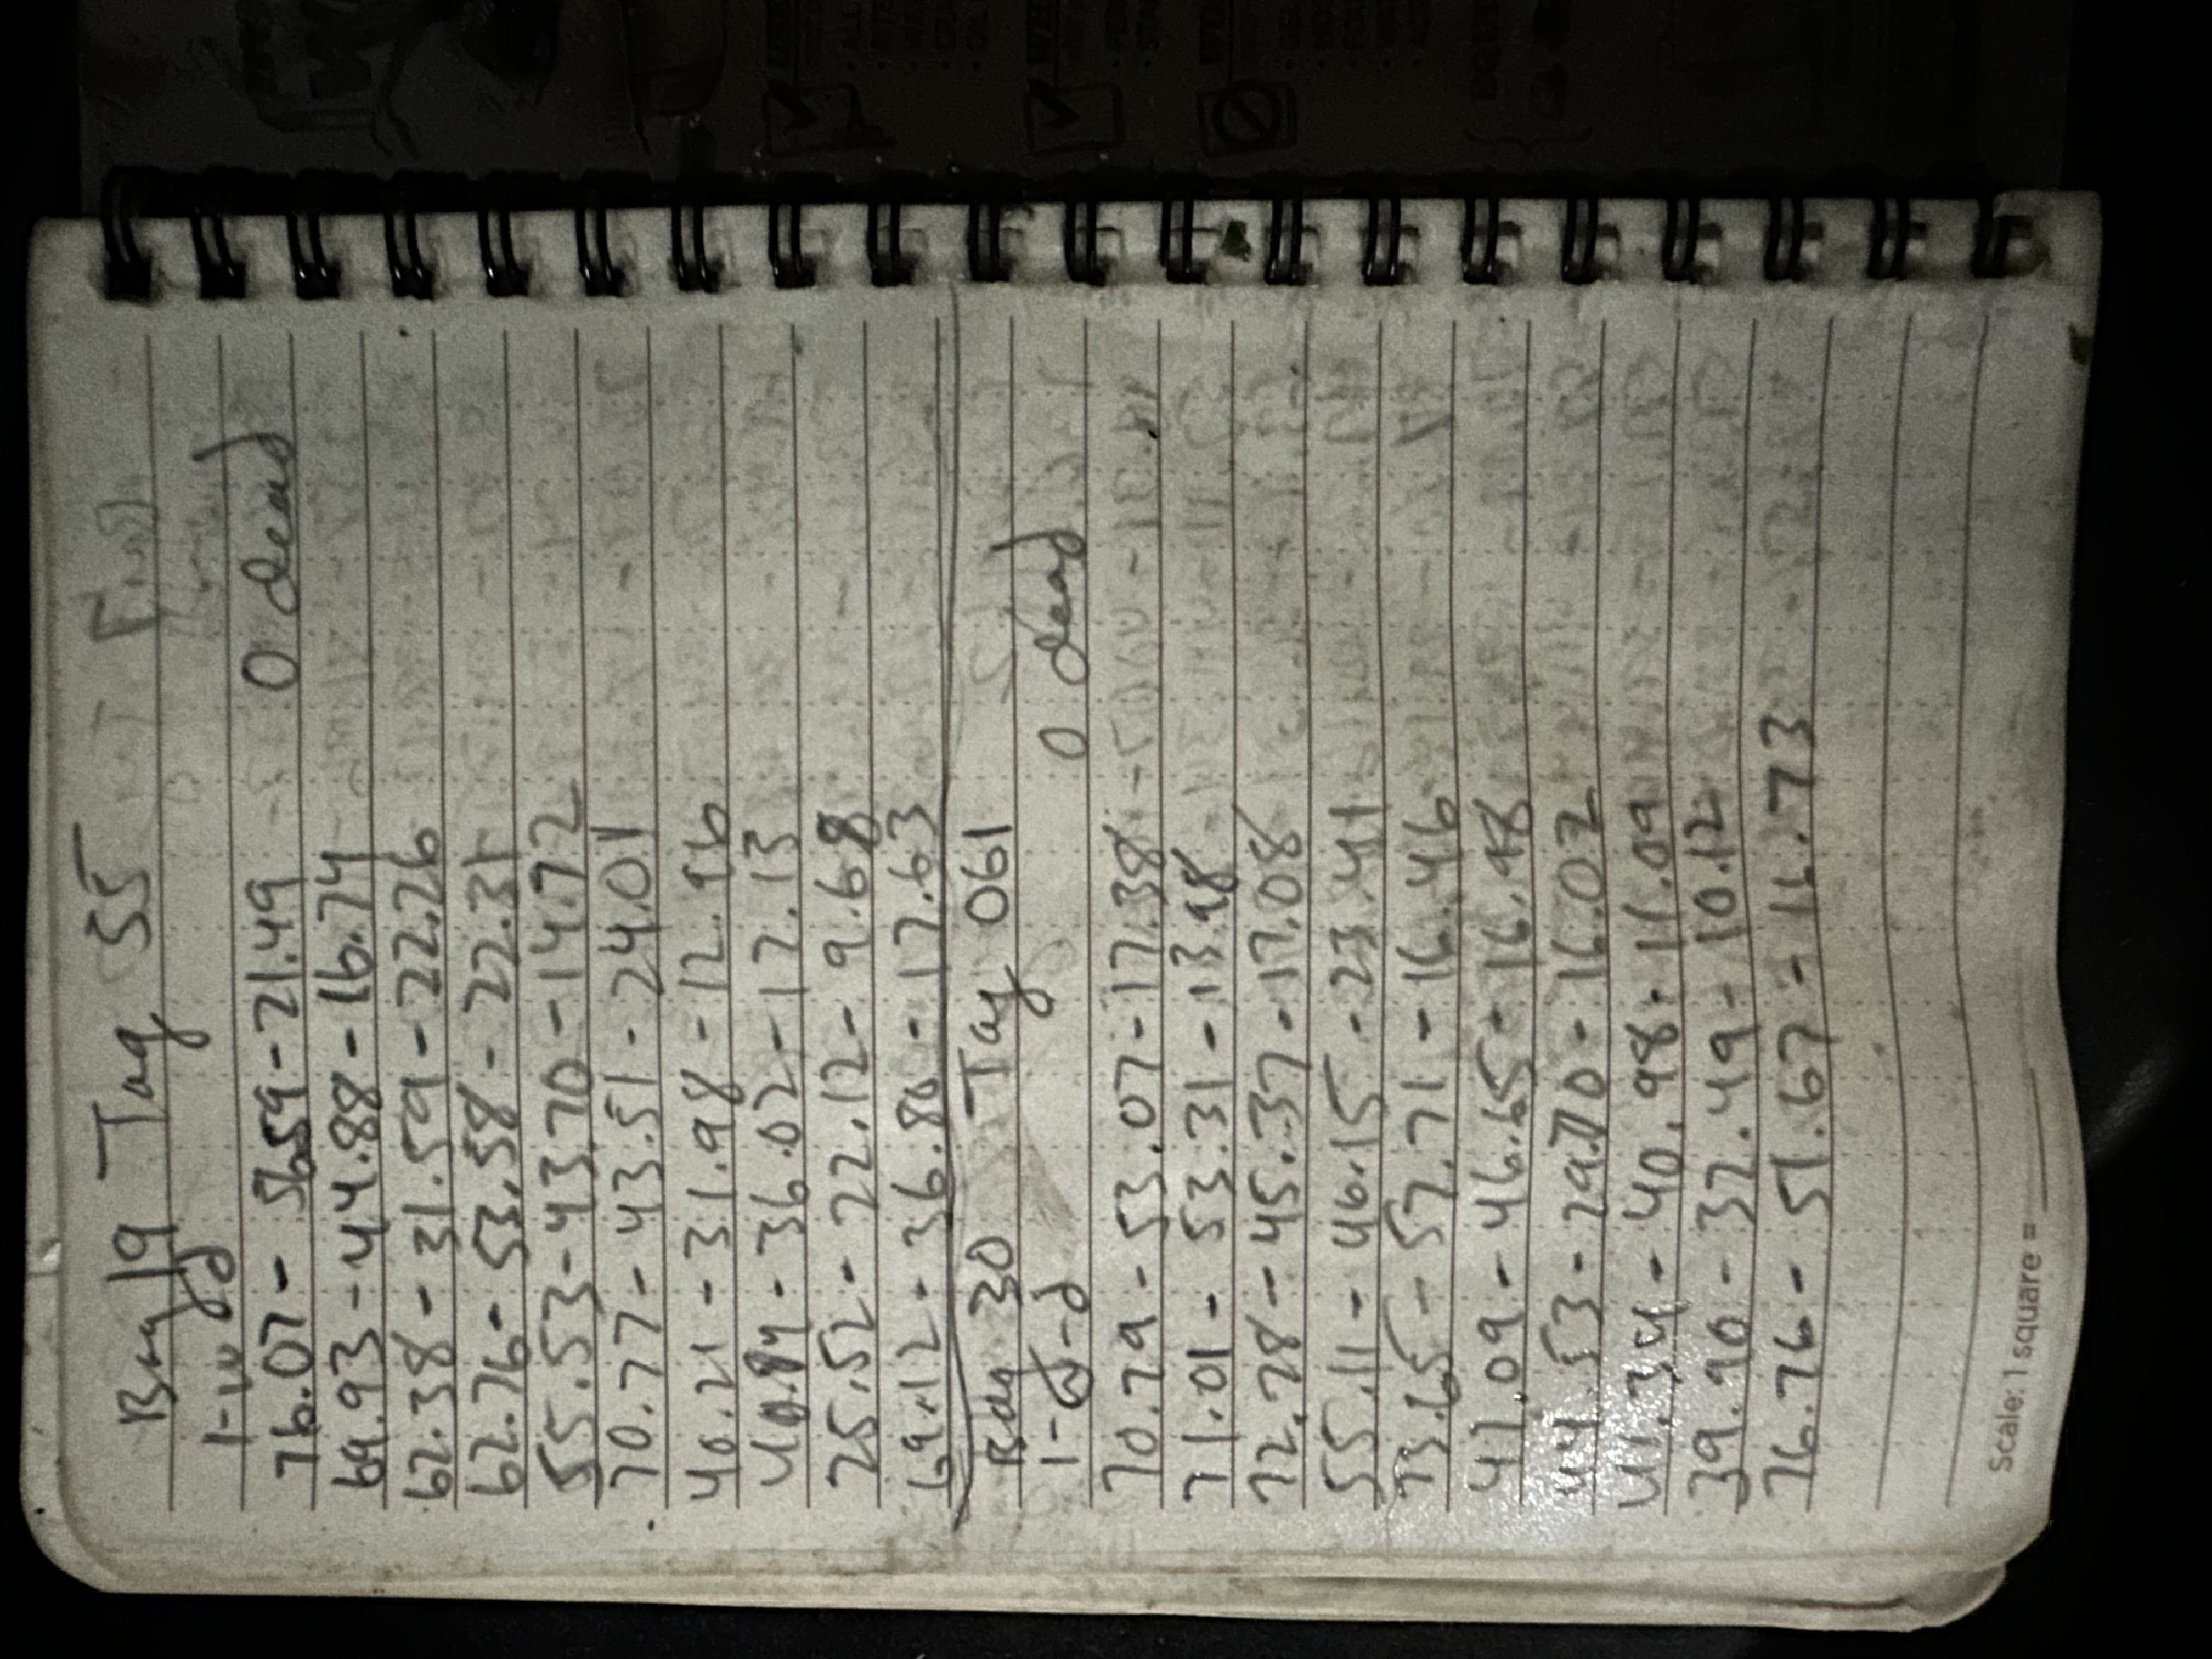 Bag 19 Tag 55
l-w-d
76.07 - 56.59 - 21.49 0 dead
69.93 - 44.88 - 16.74
62.38 - 31.59 - 22.26
62.76 - 53.58 - 22.31
55.53 - 43.70 - 14.72
70.77 - 43.51 - 24.01
40.21 - 31.98 - 12.96
- 36.02 - 12.13
25.52 - 22.12 - 9.68
69.12 - 36.80 - 17.63
Bag 30 Tag 061
l-w-d 0 dead
70.79 - 53.07 - 17.38
71.01 - 53.31 - 13.98
72.28 - 45.37 - 17.08
55.11 - 46.15 - 23.41
73.65 - 57.71 - 16.46
47.09 - 46.65 - 16.98
44.53 - 29.70 - 16.02
41.34 - 40.98 - 11.09
39.90 - 37.49 - 10.12
76.76 - 51.67 - 16.73
Scale: 1 square =